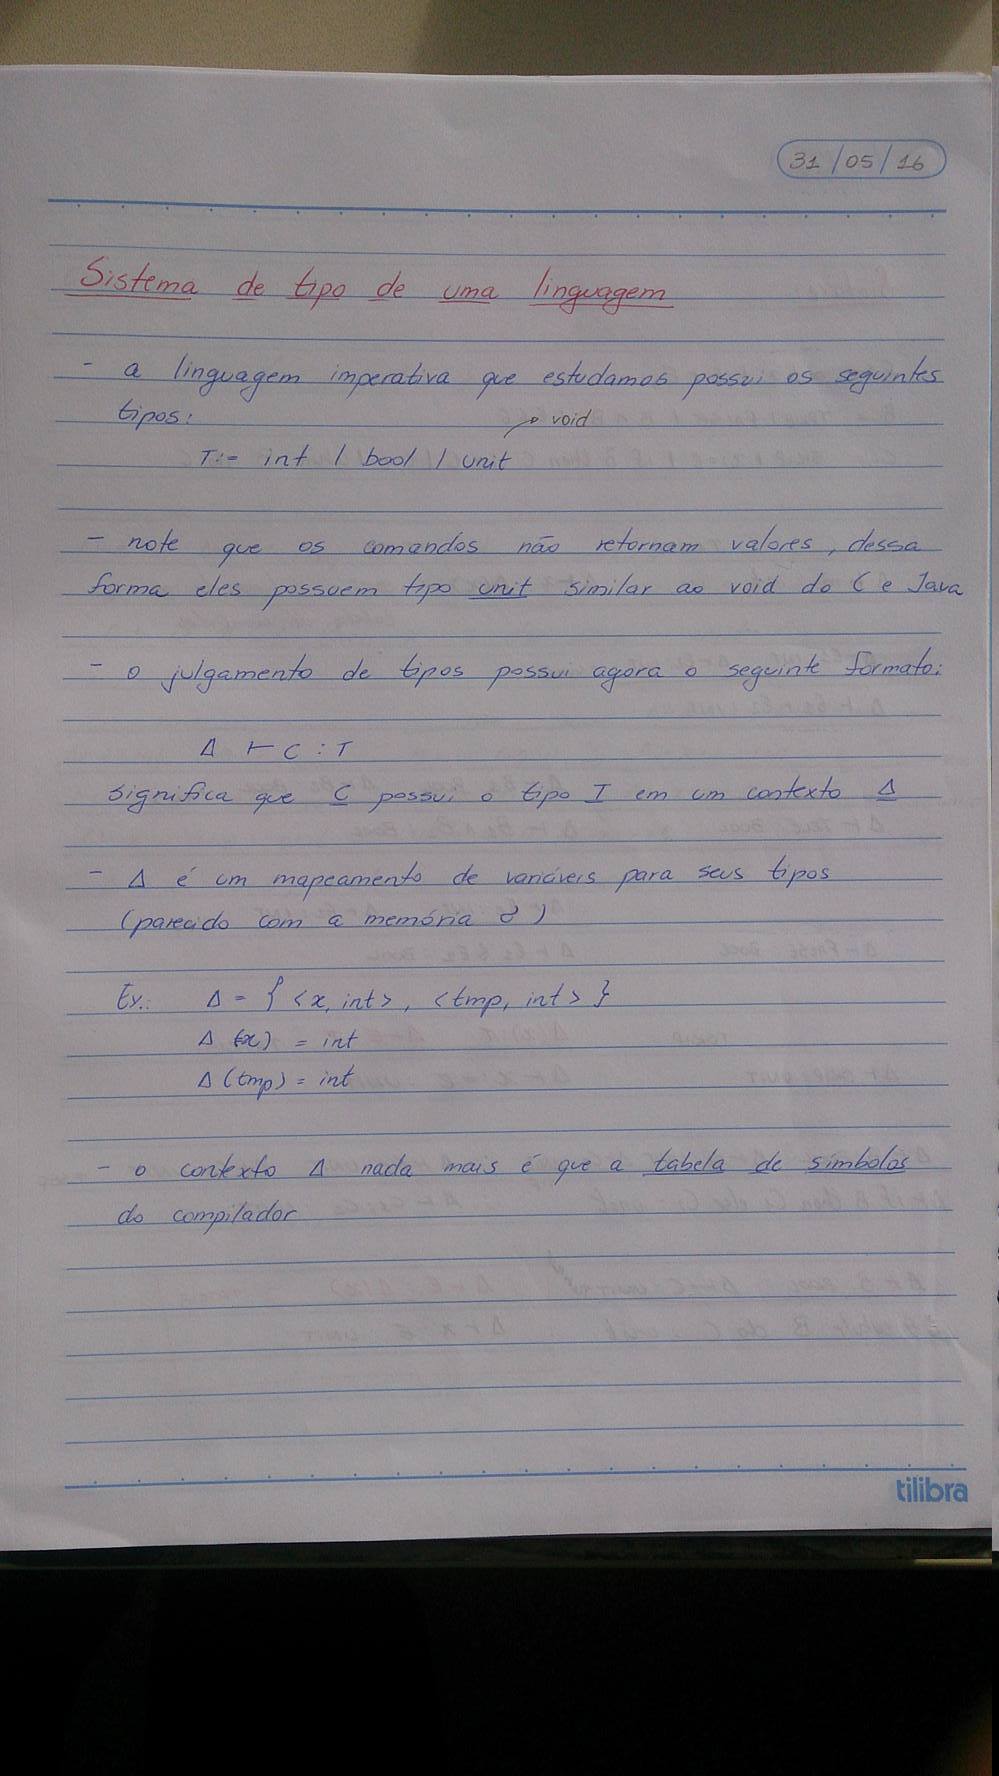 31/05/16
Sistema de tipo de uma linguagem
- a linguagem imperativa que estudamos possui os seguintes
tipos:
→ void
T:= int | bool | unit
- note que os comandos não retornam valores, dessa
forma eles possuem tipo unit similar ao void do C e Java
- o julgamento de tipos possui agora o seguinte formato:
Δ ⊢ C : T
significa que C possui o tipo T em um contexto Δ
- Δ é um mapeamento de variáveis para seus tipos
(parecido com a memória σ)
Ex.: Δ = { <x, int>, <tmp, int> }
Δ (x) = int
Δ (tmp) = int
- o contexto Δ nada mais é que a tabela de símbolos
do compilador
tilibra